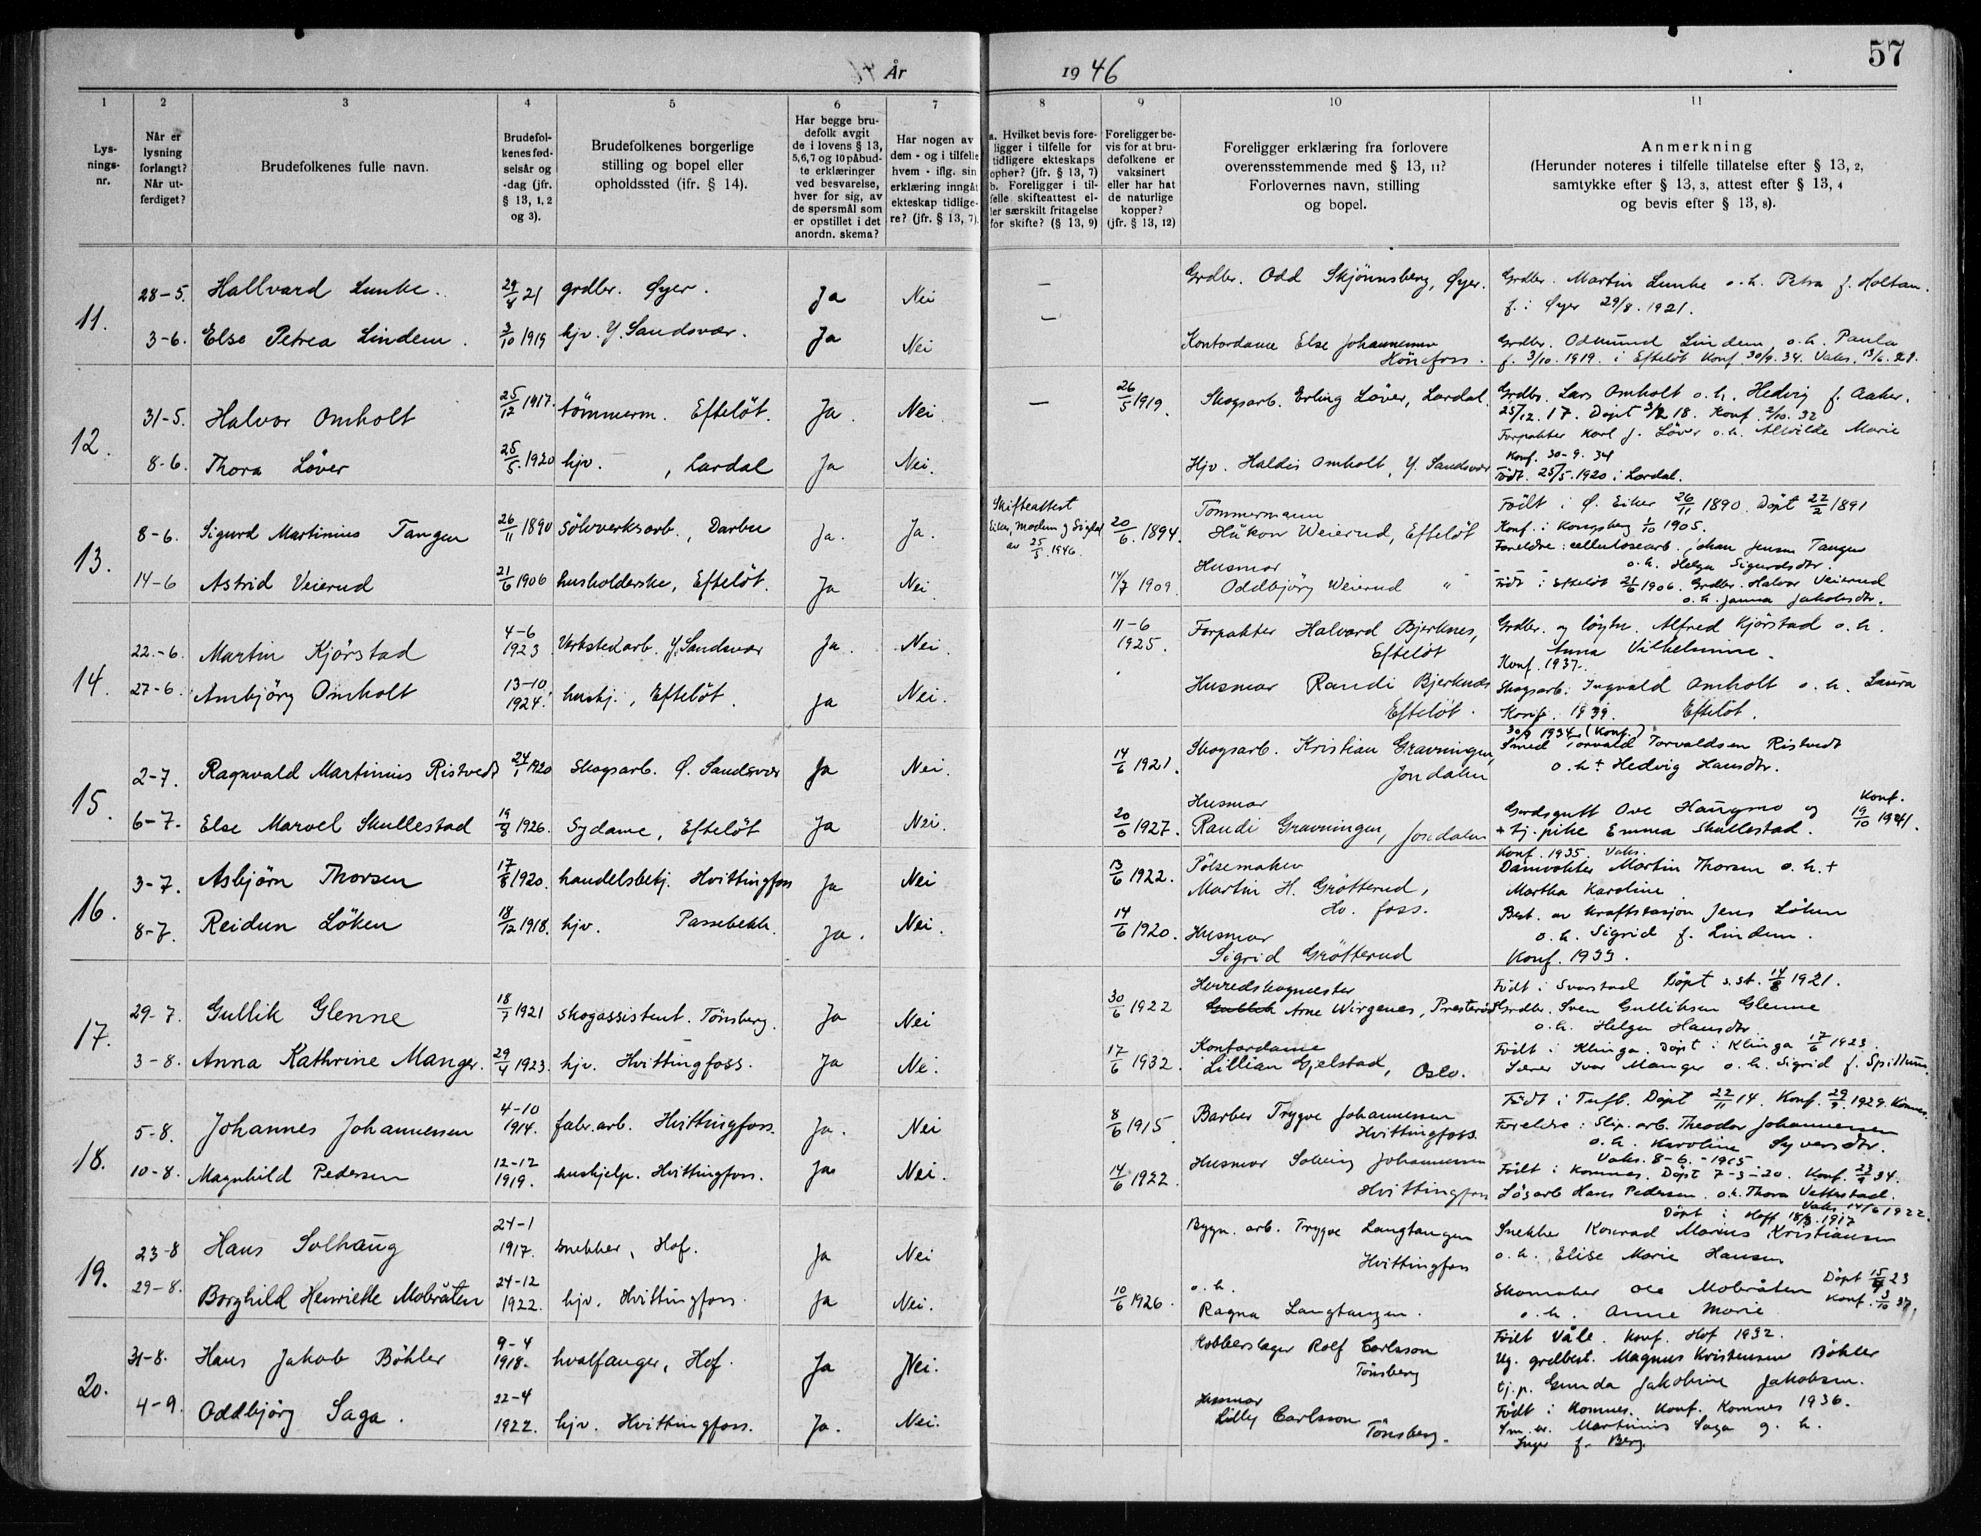 57
År 1946
1 2 3 4 5 6 7 8 9 10 11
Lys-
nings-
nr.
Når er
lysning
forlangt?
Når ut-
ferdiget?
Brudefolkenes fulle navn.
Brudefol-
kenes fød-
selsår og
-dag (jfr.
§ 13, 1, 2
og 3).
Brudefolkenes borgerlige
stilling og bopel eller
opholdssted (ifr. § 14).
Har begge bru-
defolk avgit
de i lovens § 13,
5,6,7 og 10 påbud-
te erklæringer
ved besvarelse,
hver for sig, av
de spørsmål som
er opstillet i det
anordn. skema?
Har nogen av
dem - og i tilfelle
hvem - iflg. sin
erklæring inngåt
ekteskap tidlige-
re? (jfr. § 13, 7).
a. Hvilket bevis fore-
ligger i tilfelle for
tidligere ekteskaps
ophør? (jfr. § 13, 7)
b. Foreligger i til-
felle skifteattest el-
ler særskilt fritagelse
for skifte? (§ 13, 9)
Foreligger be-
vis for at bru-
defolkene er
vaksinert
eller har hat
de naturlige
kopper?
(jfr. § 13, 12)
Foreligger erklæring fra forlovere
overensstemmende med § 13, 11?
Forlovernes navn, stilling
og bopel.
Anmerkning
(Herunder noteres i tilfelle tillatelse efter § 13, 2,
samtykke efter § 13, 3, attest efter § 13, 4
og bevis efter § 13, 8).
11.
28-5. Hallvard Lunke. 29/8 21 grdbr. Øyer. Ja Nei — Grdbr. Odd Skjønnsberg, Øyer. Grdbr. Martin Lunke o.h. Petra f. Holtan.
f. i Øyer 29/8. 1921.
3-6. Else Petrea Lindem. 3/10 1919 hjv. Y. Sandsvær. Ja Nei — Kontordame Else Johannessen
Hönefoss. Grdbr. Odmund Lindem o.h. Paula
f. 3/10. 1919. i Efteløt Konf. 30/9. 34. Vaks.
12.
31-5. Halvor Omholt 25/12 1917. tömmerm. Efteløt. Ja. Nei. — 26/5 1919. Skogsarb. Erling Løver, Lardal. Grdbr. Lars Omholt o.h. Hedvig f. Aaker.
25/12. 17. Døpt 3/2 18. Konf. 2/10. 32
8-6. Thora Løver 25/5. 1920 hjv. , Lardal Ja Nei. Hjv. Haldis Omholt, Y. Sandsvær
Forpakter Karl J. Løver o.h. Alvilde Marie
Konf. 30-9. 34
Født. 25/5. 1920 i Lardal.
13.
8-6. Sigurd Martinius Tangen 26/11 1890 sølvverksarb., Darbu Ja. Ja. Skifteattest
Eiker, Modum og Sigdal
av 25/5. 1946. 20/6. 1894. Tømmermann
Håkon Weierud, Efteløt Født i Ø. Eiker 26/11 1890. Døpt 22/2 1891
Konf. i Kongsberg 1/10 1905.
Foreldre: cellulosearb. Johan Jensen Tangen
o.h. Helga Sigurdsdtr.
14-6 Astrid Veierud 21/6 1906 husholderske, Efteløt. Ja Nei. 14/7 1909. Husmor
Oddbjörg Weierud " Født i Efteløt 21/6 1906. Grdbr. Halvor Veierud
o.h. Janna Jakobsdtr.
14.
22.-6. Martin Kjörstad 4-6
1923 Verkstedarb. Y. Sandsvær Ja. Nei. 11-6
1925. Forpakter Halvard Bjerknes,
Efteløt Grdbr. og löytn. Alfred Kjörstad o.h.
Anna Vilhelmine.
Konf. 1937.
27-6. Ambjörg Omholt 13-10
1924. hushj., Efteløt. Ja Nei. Husmor Randi Bjerknes
Efteløt. Skogsarb. Ingvald Omholt o.h. Laura
Konf. 1939. Efteløt.
15.
2-7. Ragnvald Martinius Ristvedt 24/1 1920 Skogsarb. Ø. Sandsvær Ja Nei. 14/6 1921. Skogsarb. Kristian Gravningen,
Jondalen 30/9 1934 (Konf.)
Smed Torvald Torvaldsen Ristvedt
o.h. + Hedvig Hansdtr.
6-7. Else Marvel Skullestad 19/8 1926. Sydame, Efteløt Ja Nei. 20/6 1927. Husmor
Randi Gravningen, Jondalen Gårdsgutt Ove Haugmo og Konf.
+ tj. pike Emma Skullestad. 19/10 1941.
16.
3-7. Asbjörn Thorsen 17/8 1920. handelsbetj. Hvittingfoss Ja Nei 13/6 1922. Pølsemaker
Martin H. Grötterud,
Hv. foss. Konf. 1935. Vaks.
Damvokter Martin Thorsen o.h. +
Martha Karoline
8-7. Reidun Löken 18/12 1918. hjv. Passebekk. Ja. Nei. 14/6 1920. Husmor
Sigrid Grötterud Best. av kraftstasjon Jens Löken
o.h. Sigrid f. Lindem.
Konf. 1933.
17.
29-7. Gullik Glenne 18/7 1921 skogassistent. Tönsberg. Ja Nei 30/6 1922 Herredskogmester
Gullik Arne Wirgenes, Presterød Født i Svarstad Døpt s.st. 14/8 1921.
Grdbr. Sven Gulliksen Glenne
o.h. Helga Hansdtr.
3-8. Anna Kathrine Manger. 29/4 1923. hjv. Hvittingfoss. Ja Nei. 17/6 1932. Kontordame
Lillian Gjelstad, Oslo. Født i Klinga. Døpt i Klinga 17/6 1923.
Lærer Ivar Manger o.h. Sigrid f. Spillum.
18.
5-8. Johannes Johannessen 4-10
1914. fabr.arb. Hvittingfoss. Ja. Nei 8/6 1915. Barber Trygve Johannessen
Hvittingfoss. Født i Tuft. Døpt 22/11 14. Konf. 29/9. 1929. Komnes.
Foreldre: Slip. arb. Theodor Johannessen
o.h. Karoline Syversdtr.
Vaks. 8-6.-1915
10-8. Magnhild Pedersen 12-12
1919. hushjelp. Hvittingfoss. Ja Nei. 14/6 1922. Husmor Solveig Johannessen
Hvittingfoss Født i Komnes. Døpt 7-3-20. Konf. 34.
Løsarb Hans Pedersen. o.h. Thora Vettestad.
Vaks. 14/6 1922.
19.
23-8 Hans Solhaug 24-1
1917. snekker, Hof. Ja Nei Bygn. arb. Trygve Langtangen
Hvittingfoss Døpt i Hoff 18/3. 1917
Snekker Konrad Marius Kristiansen
o.h. Elise Marie Hansen
29-8. Borghild Henriette Mobråten 24-12
1922. hjv. Hvittingfoss. Ja Nei. 10/6 1926. o.h.
Ragna Langtangen. Skomaker Ole Mobråten Døpt 15/4 23
o.h. Anne Marie Konf. 3/10 37.
20.
31-8. Hans Jakob Böhler 9-4
1918. hvalfanger, Hof. Ja Nei. Kobberslager Rolf Carlsson
Tönsberg Født Våle. Konf. Hof 1932.
Ug. grdbest. Magnus Kristensen Böhler
tj.p. Gunda Jakobine Jakobsen.
4-9. Oddbjörg Saga. 22-4
1922. hjv. Hvittingfoss. Ja. Nei. Husmor
Lilly Carlsson
Tönsberg. Født i Komnes. Konf. Komnes 1936.
Martinius Saga o.h.
Inger f. Berg